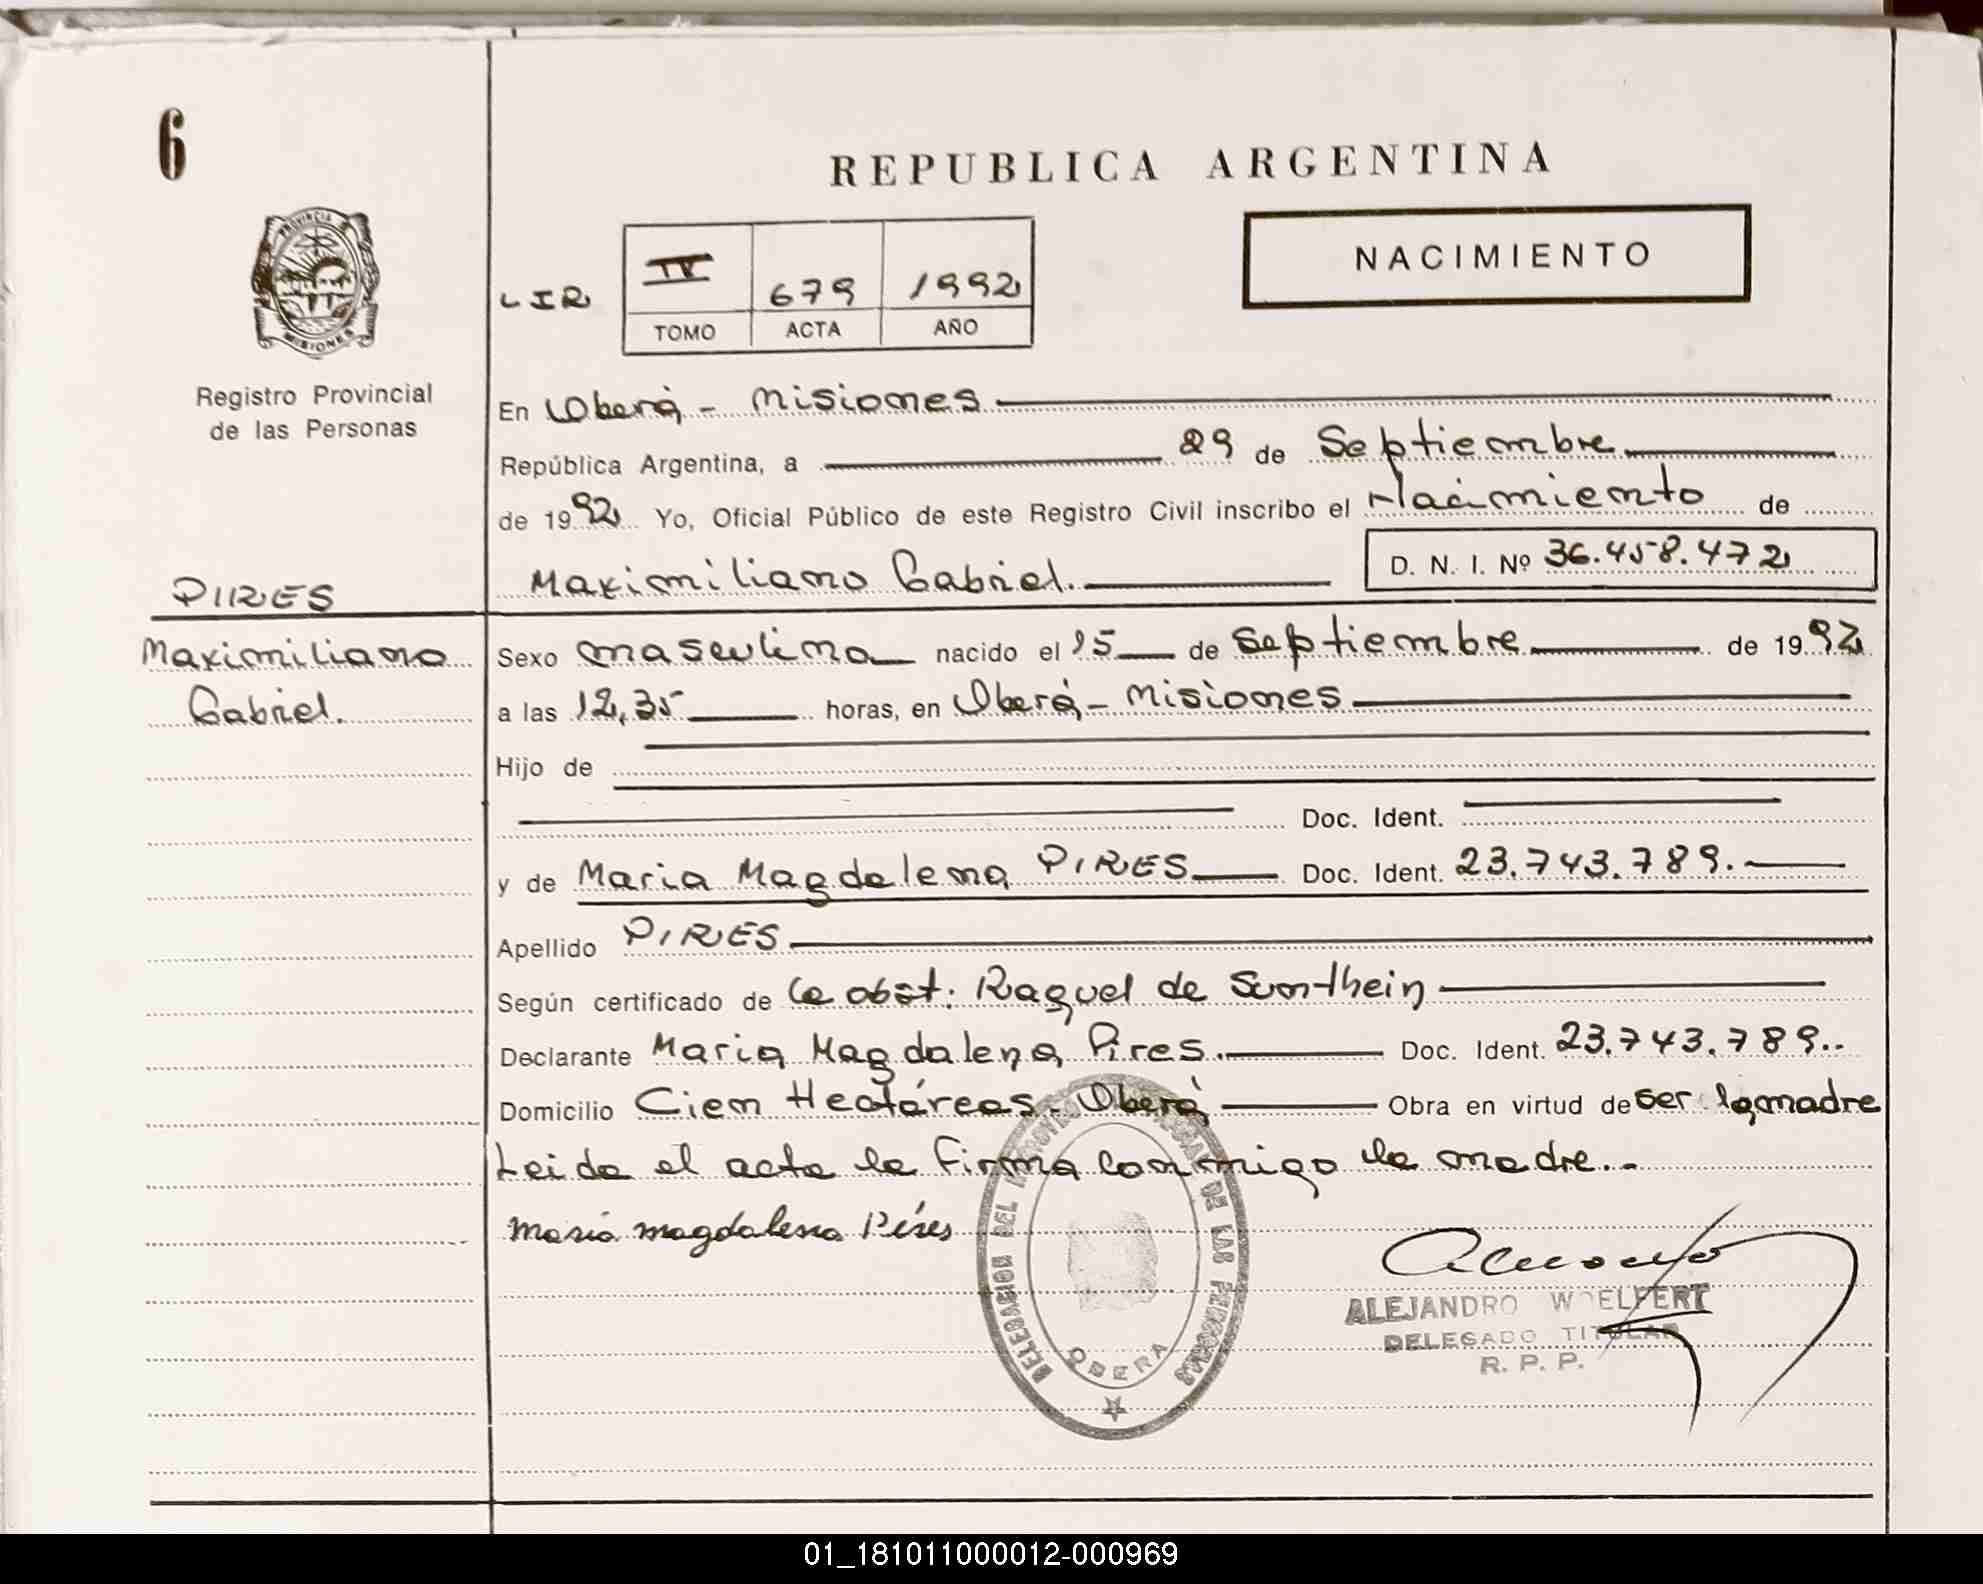 6
REPUBLICA ARGENTINA
PROVINCIA
MISIONES
Registro Provincial
de las Personas
LIR
IV 679 1992
TOMO ACTA AÑO
NACIMIENTO
En Oberá - Misiones
República Argentina, a 29 de Septiembre
de 1992 Yo, Oficial Público de este Registro Civil inscribo el Nacimiento de
Maximiliano Gabriel. D. N. I. Nº 36.458.472
PIRES
Maximiliano
Gabriel.
Sexo masculino nacido el 15 de Septiembre de 1992
a las 12,35 horas, en Oberá - Misiones
Hijo de
Doc. Ident.
y de Maria Magdalena PIRES Doc. Ident. 23.743.789.
Apellido PIRES
Según certificado de la obst. Raquel de Sunthein
Declarante Maria Magdalena Pires. Doc. Ident. 23.743.789..
Domicilio Cien Hectáreas - Oberá Obra en virtud de ser la madre
Leida el acta la firma conmigo la madre.-
Maria magdalena Pires
DELEGACION DEL REGISTRO PROVINCIAL DE LAS PERSONAS
OBERA
ALEJANDRO WOELFERT
DELEGADO TITULAR
R. P. P.
01_181011000012-000969